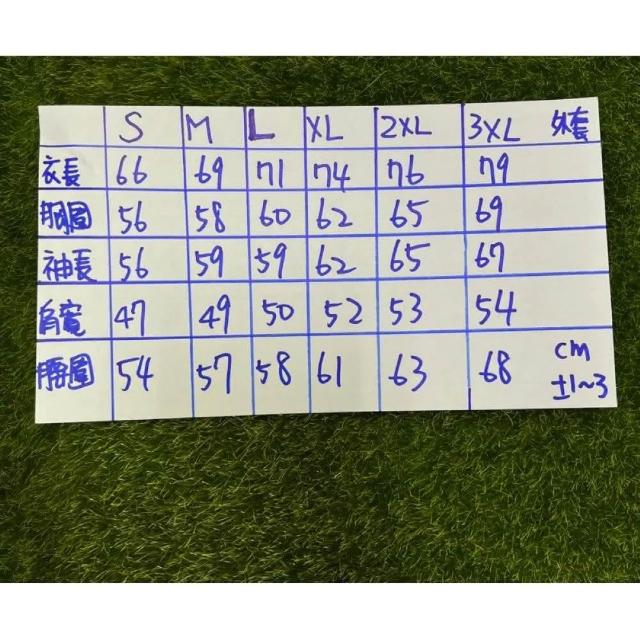 S M L XL 2XL 3XL 外套
衣長 66 69 71 74 76 79
胸圍 56 58 60 62 65 69
袖長 56 59 59 62 65 67
肩寬 47 49 50 52 53 54
腰圍 54 57 58 61 63 68 CM
±1~3